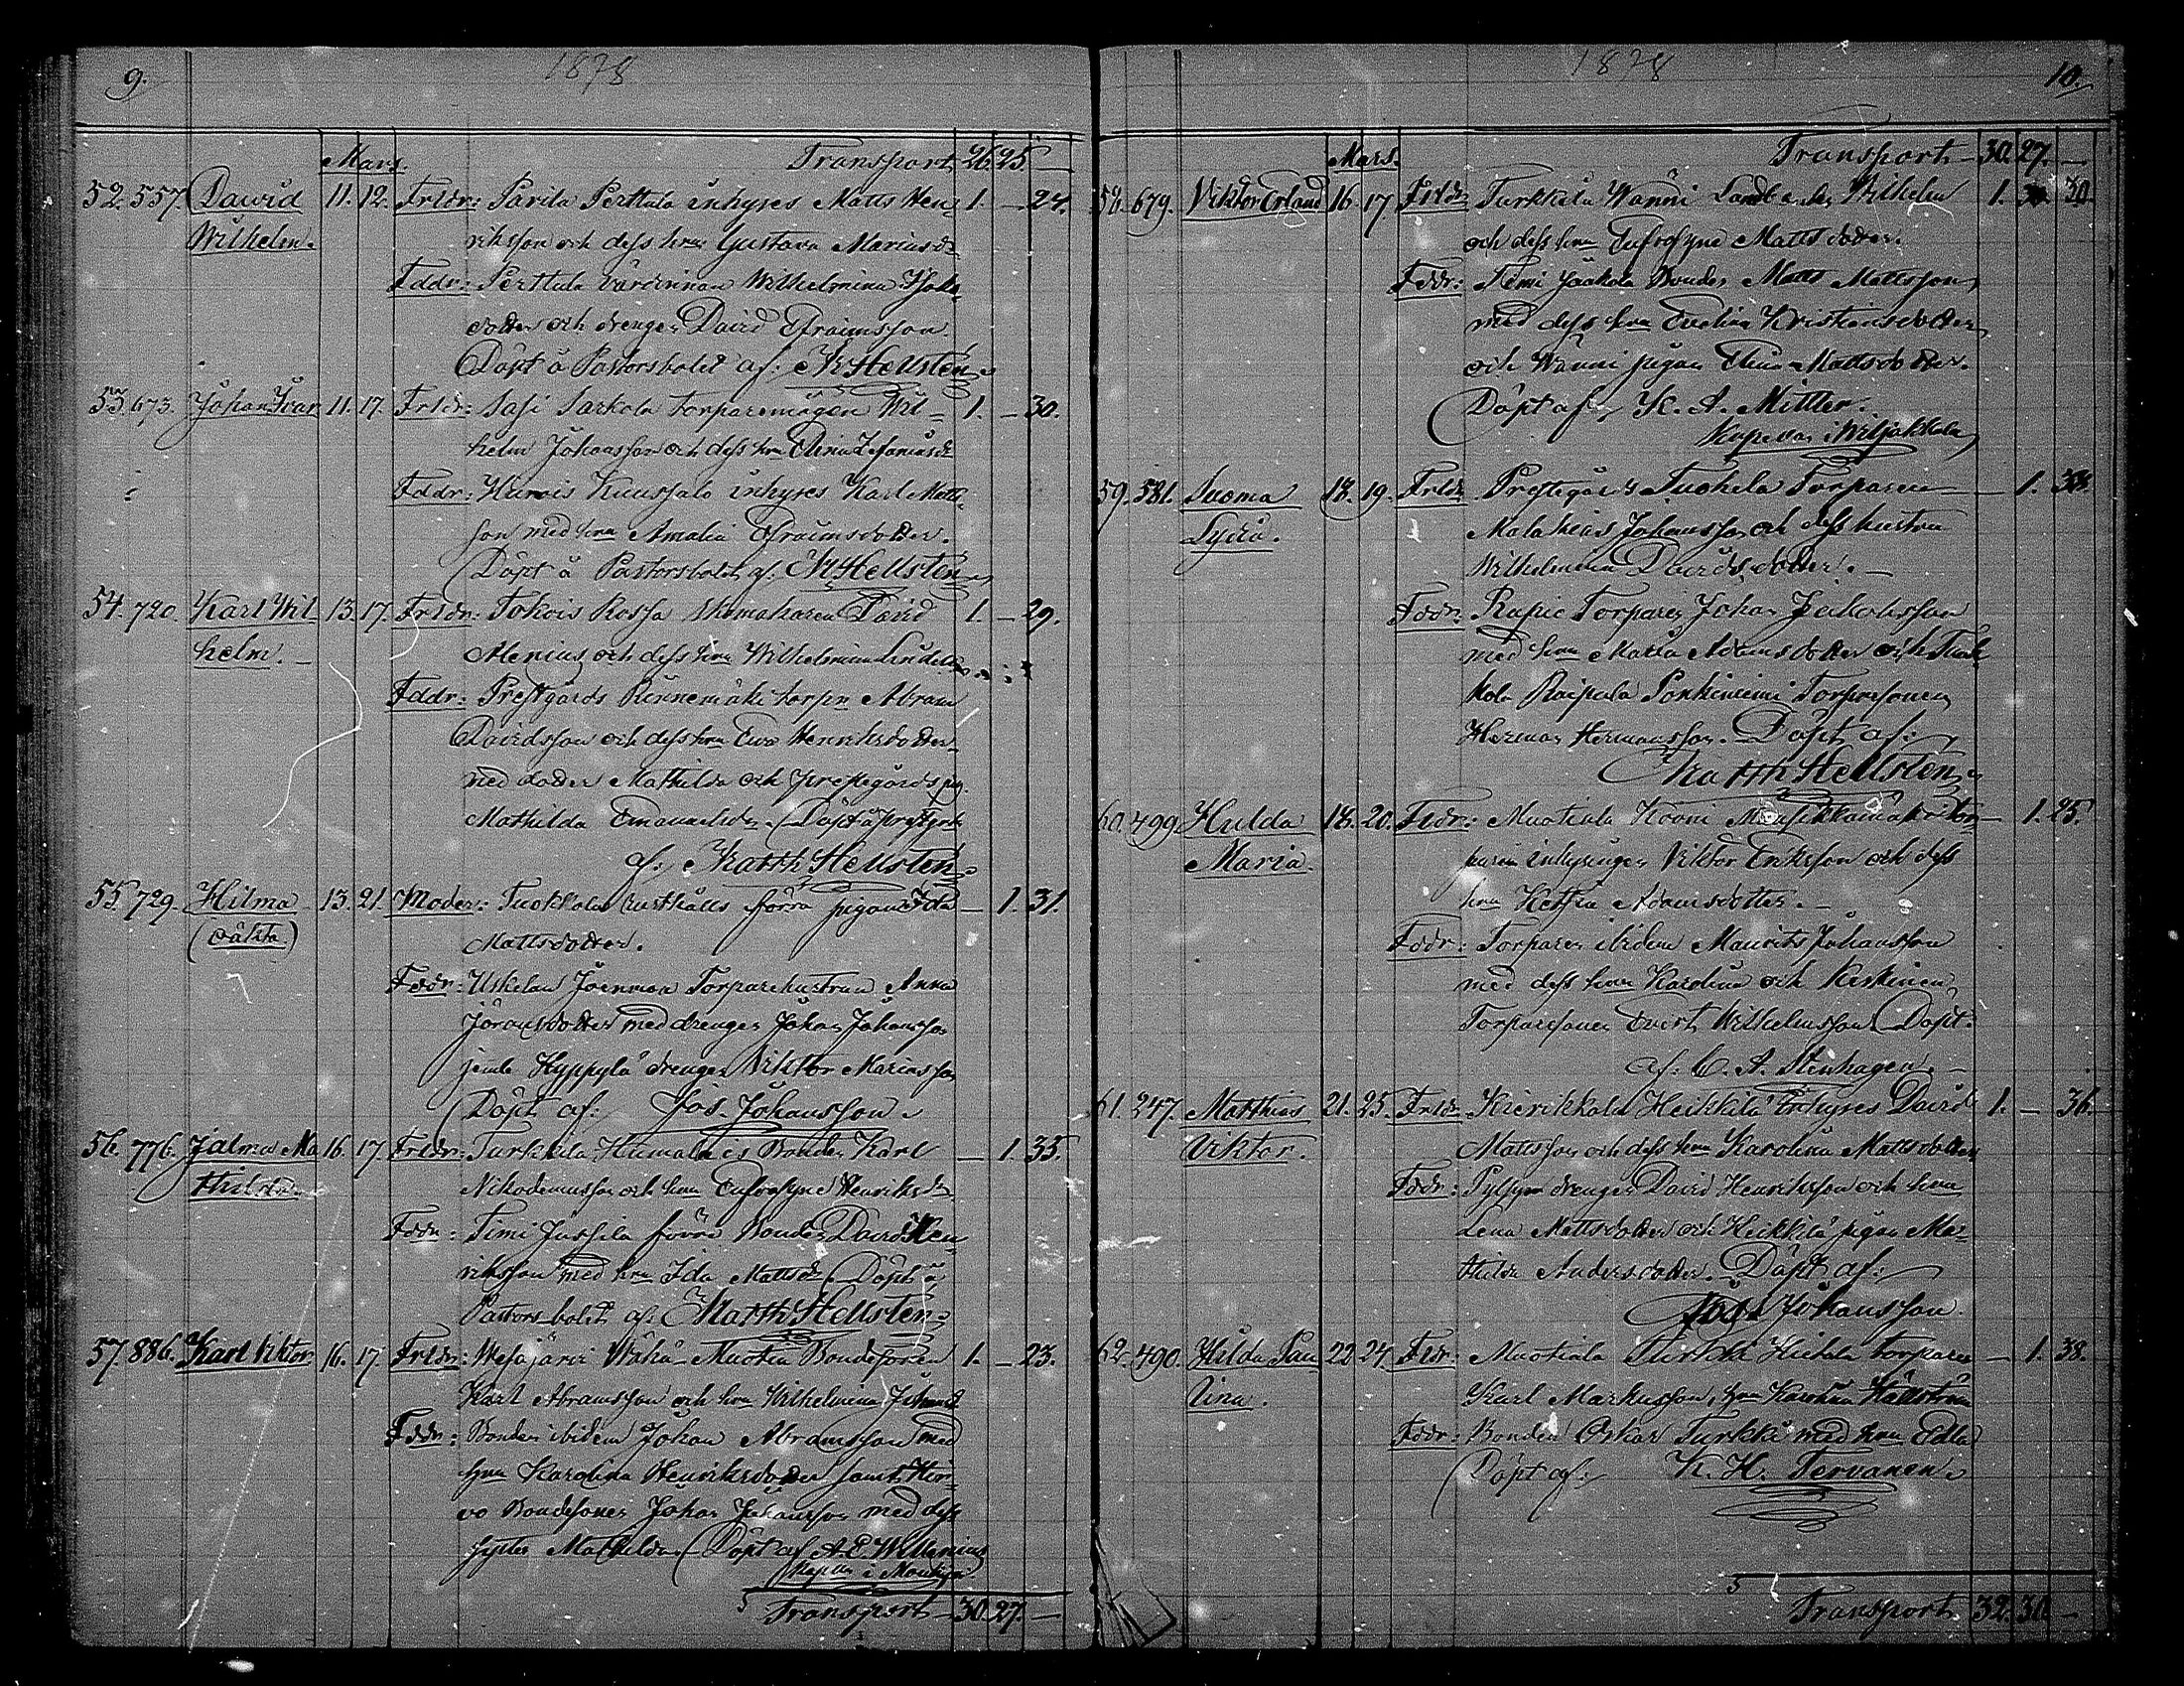 9.
1878
Mars.
Transport 26. 25. —
52. 557. Dawid 11. 12. Frldr: Parila Perttula inhyses Matts Hen- 1. — 24.
Wilhelm. riksson och dess hru Gustava Mariusdr
Fddr: Perttula värdinnan Wilhelmina
dotter och drengen David Efraimsson.
Döpt å Pastorsbolet af: M Hellsten.
53. 673. Johan Ivar 11. 17. Frldr: Sasi Sarkola torparemågen Wil- 1. — 30.
helm Johansson och dess hru Elina
Fddr: Kuussalo inhyses Karl Matts
son med hru Amalia Efraimsdotter.
Döpt å Pastorsbolet af: M Hellsten
54. 720. Karl Wil- 13. 17. Frldr: Tokois Rossa skomakaren David 1. — 29.
helm. — Alenius och dess hru Wilhelmina
Fddr: Prestgårds Rinnemäki torpn Abram
Davidsson och dess hru Eva Henriksdotter
med dotter Mathilda och prestegårds pig.
Mathilda Döpt å prestgrd
af: Matth Hellsten
55. 729. Hilma 13. 21. Moder: Tuokkola rusthålls förra pigan Ida — 1. 31.
(oäkta.) Mattsdotter.
Fddr: Uskelan Torparehustrun Anna
Göransdotter med drengen Johan Johansson
jemte Hyppylä drengen Viktor Mariusson
Döpt af: Jos. Johansson.
56. 776. Jalma Ma 16. 17. Frldr: Turkkila Humalois Bonden Karl — 1. 33.
thilda. Nikodemusson och hru Eufrosyne Henriksdr
Fddr: Timi Jussila förre Bonden David Hen
riksson med hru Ida Mattsdr Döpt å
Pastorsbolet af: Matth Hellsten.
57. 886. Karl Viktor 16. 17. Frldr: Wesajärvi Wähä-Muotia Bondesonen 1. — 23.
Karl Abramsson och hru Wilhelmina
Fddr: Bonden ibidem Johan Abramsson med
hru Karolina Henriksdotter samt Hir-
vo Bondesonen Johan Johansson med dess
syster Mathilda. Döpt af A. E.
Kapell. i
Transport 30. 27. —
1878
10.
Mars.
Transport 30. 27. —
58. 679. Viktor Erland 16. 17 Frldr: Turkkila Wänni Landb Wilhelm 1. 30.
och dess hru Eufrosyne Mattsdotter.
Fddr: Timi Jaakola Bonden Matts Mattsson
med dess hru Evelina Kristiansdotter
och Wänni pigan Elina Mattsdotter.
Döpt af K. A. Mittler.
i Wiljakkala
59. 581. Suoma 18. 19. Frldr: Prestegårds Tuohela Torparen — 1. 33.
Lydia. Malakias Johansson och dess hustru
Wilhelmina Davidsdotter. —
Fddr: Rapie Torparen Johan Jakobsson
med hru Maria Adamsdotter och Tuok
kola Raipala Torparsonen
Herman Hermansson. Döpt af:
Matth Hellsten
60. 499. Hulda 18. 20. Frldr: Muotiala Kooni Mansikkamäki tor- — 1. 25.
Maria. paren inhysingen Viktor Eriksson och dess
hru Adamsdotter. —
Fddr: Torparen ibidem Maurits Johansson
med dess hru Karolina och Keskinen
Torparesonen Evert Wilhelmsson Döpt.
af: C. A. Stenhagen. —
61. 247. Matthias 21. 25. Frldr: Kierikkala Heikkilä Inhyses David 1. — 36.
Viktor. Mattsson och dess hru Karolina Mattsdotter
Fddr: drengen David Henriksson och hru
Lena Mattsdotter och Heikkilä pigan Ma-
thilda Andersdotter. Döpt af:
Jos. Johansson
62. 490. Hilda Pau 22. 24. Frldr: Muotiala Turkki torparen — 1. 38.
lina. Karl Markusson, hru Karolina Hällström
Fddr: Bonden Oskar Turkki med hru Edla
Döpt af: K. H. Tervanen.
Transport 32. 30. —